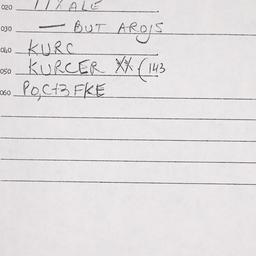 020 11% ALE
030 — BUT AROJS
040 KURC
050 KURCER XX (143
060 PO,C+3 FKE